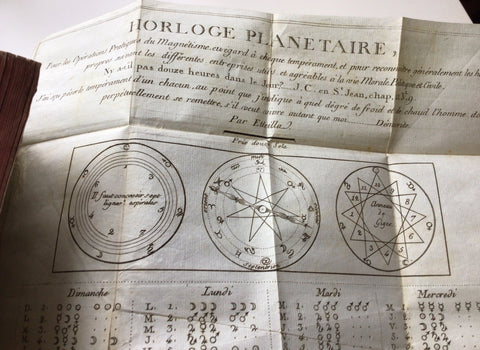 HORLOGE PLANETAIRE,
Pour les Opérations Pratiques du Magnétisme, eu égard à chaque tempérament, et pour reconnoître généralement les h
propres suivant les differentes entreprises utiles et agreables a la vie Morale, Phisique et Civile.
N'y a-t-il pas douze heures dans le Jour? J.C. en S.t Jean, chap.
J'ai su peser le tempérament d'un chacun, au point que j'indique à quel dégré de froid et le chaud l'homme do
perpétuellement se remettre, s'il veut vivre autant que moi. Démocrite.
Par Etteilla.
Prix douze Sols
Il faut concevoir sept
lignes spirales
midi
Septentrion
Anneau
de
Gigès
Dimanche Lundi Mardi Mercredi
D. 1. L. 1. M. 1. M. 1.
L. 2. M. 2. M. 2. J. 2.
M. 3. M. 3. J. 3. V. 3.
M. 4. J. 4. V. 4. S. 4.